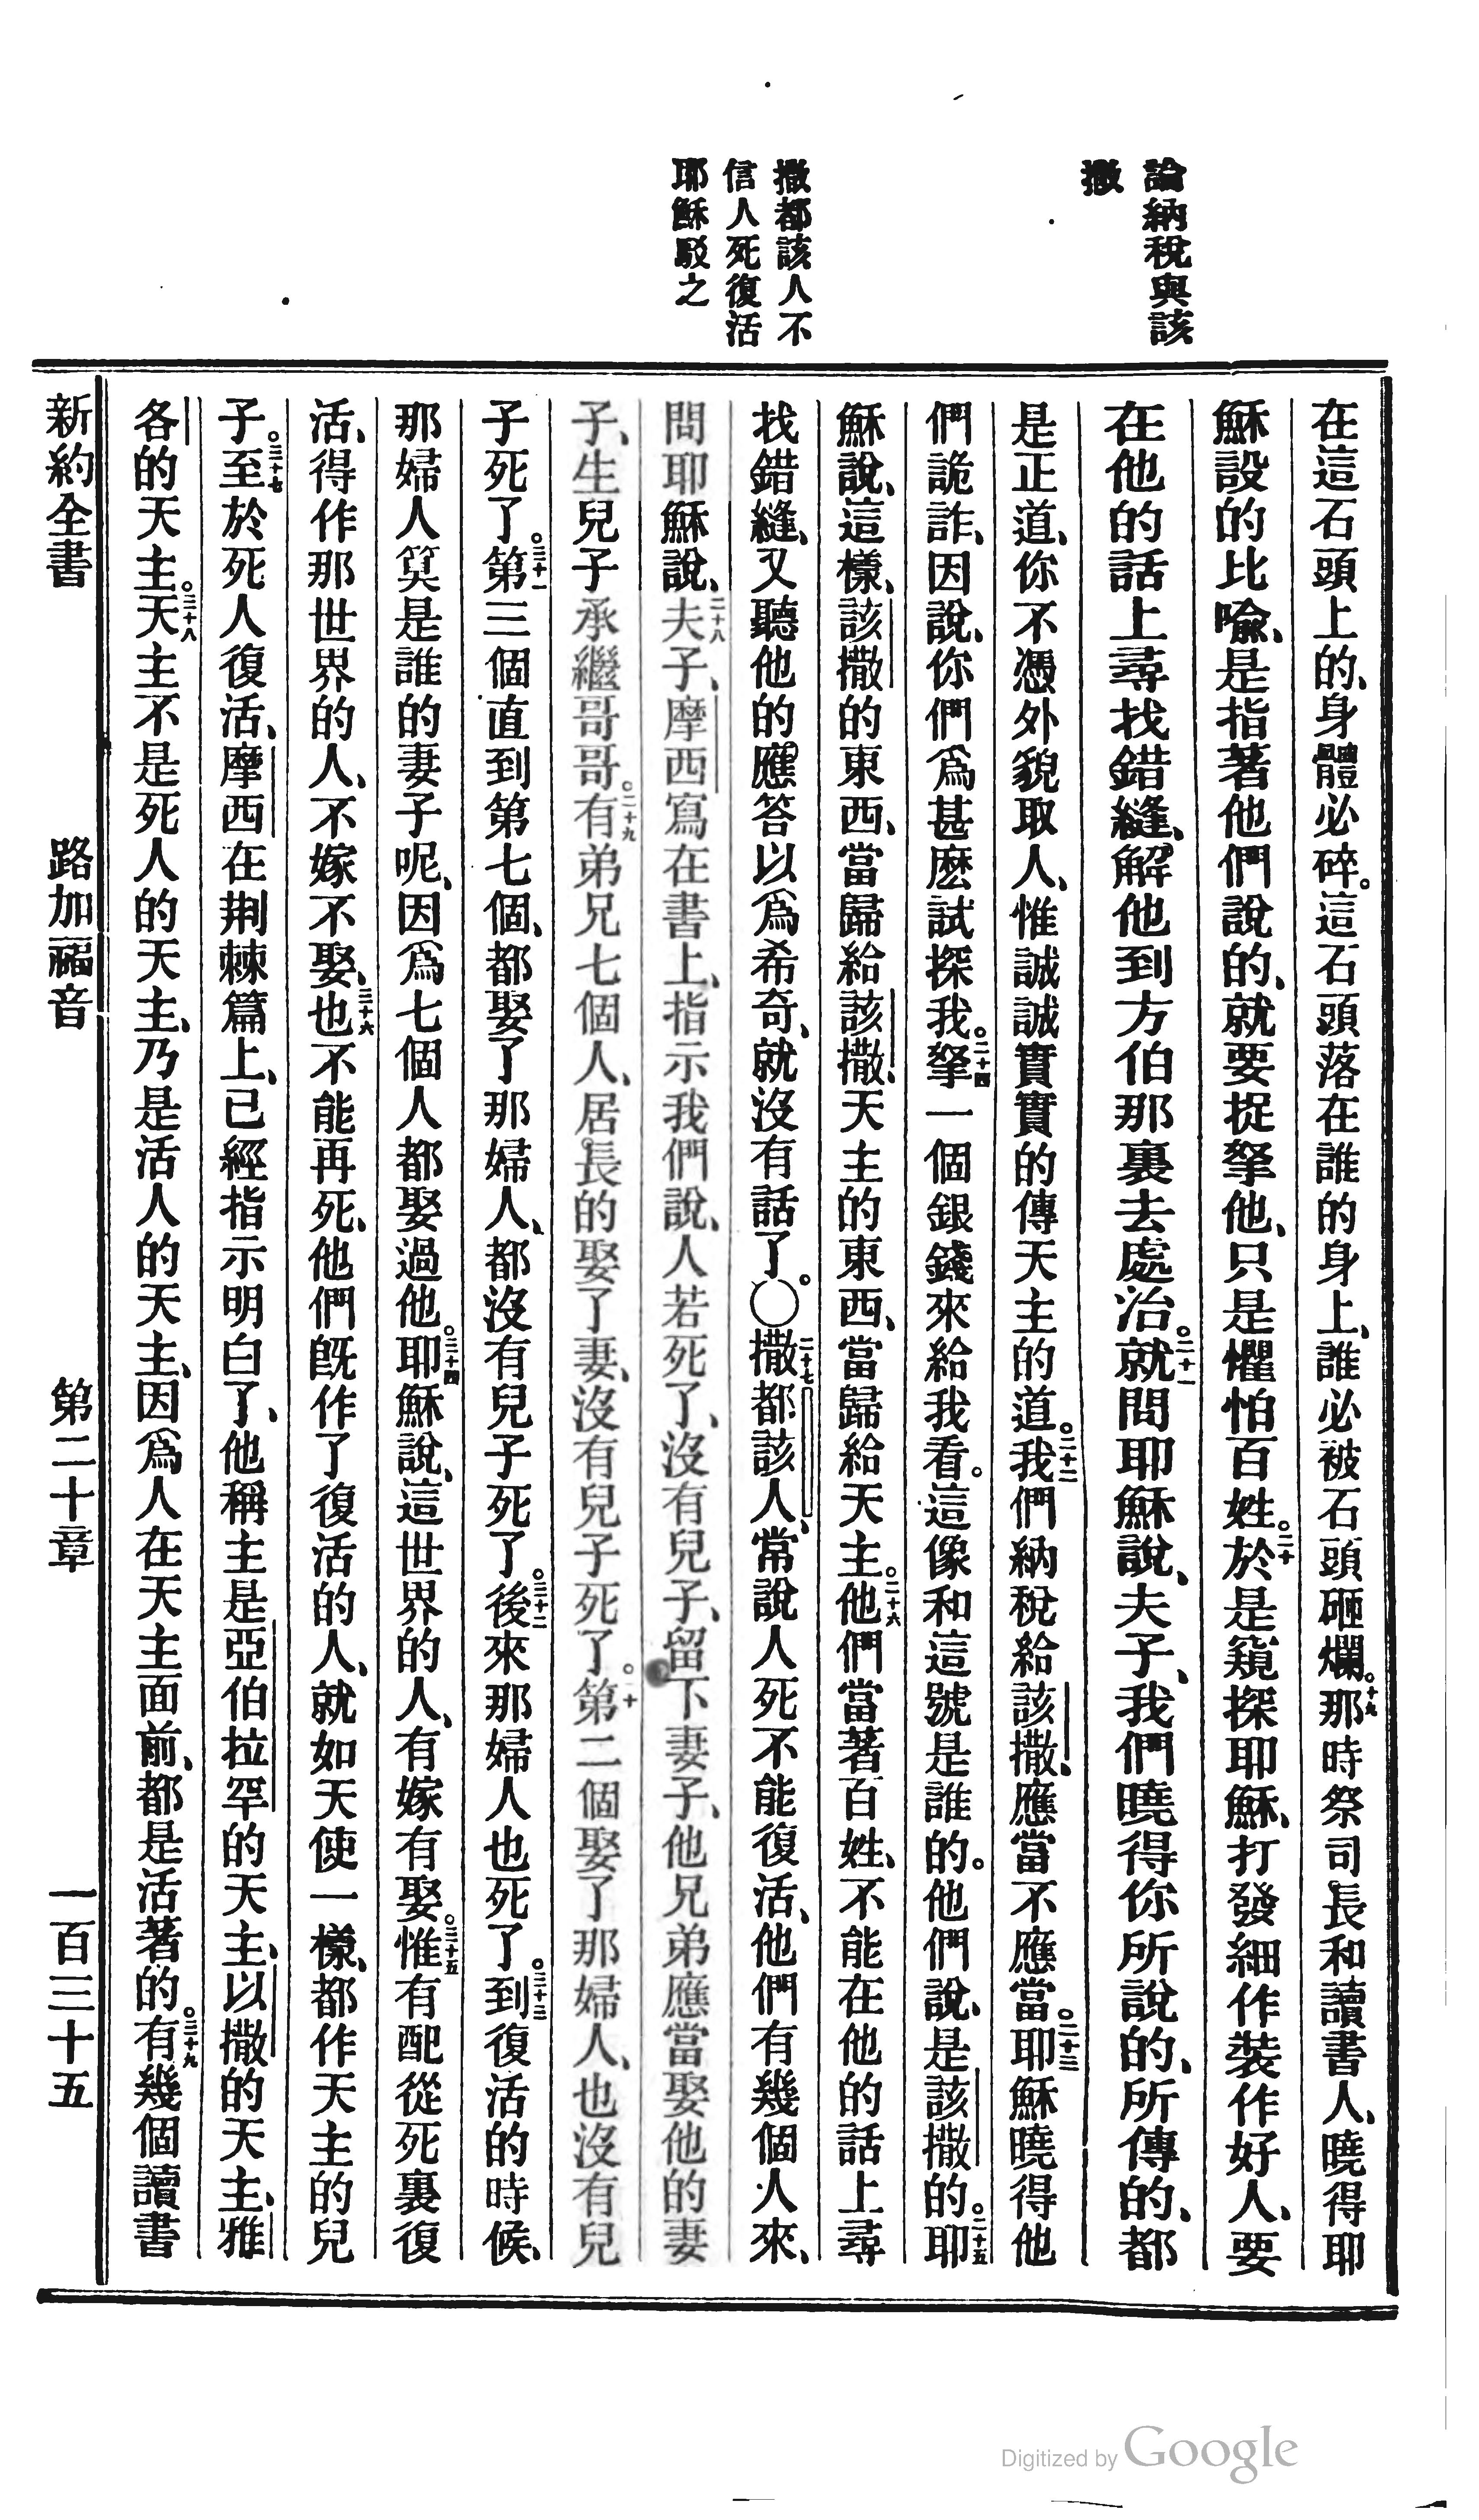 論納稅與該
撒
撒都該人不
信人死復活
耶穌駁之
在這石頭上的、身體必碎。這石頭落在誰的身上、誰必被石頭砸爛。十九那時祭司長和讀書人、曉得耶
穌設的比喻、是指著他們說的、就要捉拏他、只是懼怕百姓。二十於是窺探耶穌、打發細作裝作好人、要
在他的話上尋找錯縫、解他到方伯那裏去處治。二十一就問耶穌說、夫子、我們曉得你所說的、所傳的、都
是正道、你不憑外貌取人、惟誠誠實實的傳天主的道。二十二我們納稅給該撒、應當不應當。二十三耶穌曉得他
們詭詐、因說、你們爲甚麽試探我。二十四拏一個銀錢來給我看。這像和這號是誰的。他們說、是該撒的。二十五耶
穌說、這樣、該撒的東西、當歸給該撒、天主的東西、當歸給天主。二十六他們當著百姓、不能在他的話上尋
找錯縫、又聽他的應答以爲希奇、就沒有話了。〇二十七撒都該人、常說人死不能復活、他們有幾個人來、
問耶穌說、二十八夫子、摩西寫在書上、指示我們說、人若死了、沒有兒子、留下妻子、他兄弟應當娶他的妻
子、生兒子承繼哥哥。二十九有弟兄七個人、居長的娶了妻、沒有兒子死了。十第二個娶了那婦人、也沒有兒
子死了。三十一第三個直到第七個、都娶了那婦人、都沒有兒子死了。三十二後來那婦人也死了。三十三到復活的時候、
那婦人算是誰的妻子呢、因爲七個人都娶過他。三十四耶穌說、這世界的人、有嫁有娶。三十五惟有配從死裏復
活、得作那世界的人、不嫁不娶、三十六也不能再死、他們旣作了復活的人、就如天使一樣、都作天主的兒
子。三十七至於死人復活、摩西在荆棘篇上、已經指示明白了、他稱主是亞伯拉罕的天主、以撒的天主、雅
各的天主。三十八天主不是死人的天主、乃是活人的天主、因爲人在天主面前、都是活著的。三十九有幾個讀書
新約全書　路加福音　第二十章　一百三十五
Digitized by Google